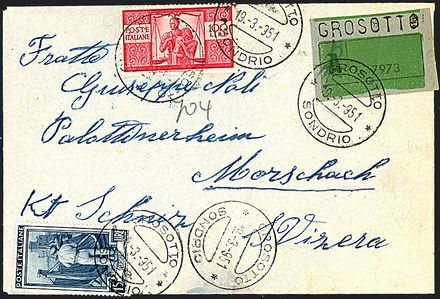 POSTE ITALIANE 100 LIRE
GROSOTTO 19-3-951 SONDRIO
GROSOTTO
7973
GROSOTTO 19-3-951 SONDRIO
Fratte
Giuseppe Noli
704
Palottinerheim
Morschach
Kt Schwiz Svizera
POSTE ITALIANE 15
GROSOTTO 19-3-951 SONDRIO
GROSOTTO 19-3-951 SONDRIO